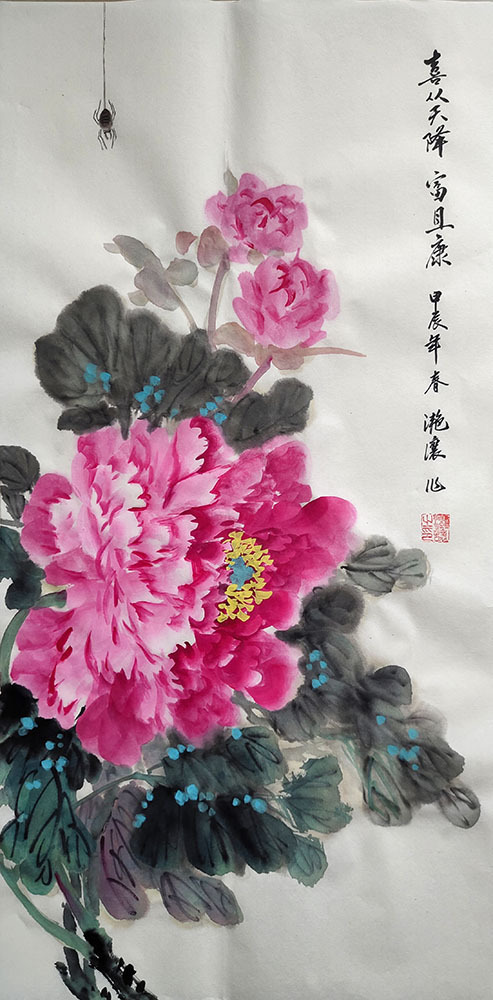 喜从天降 富且康 甲辰年春 滟瀼 作